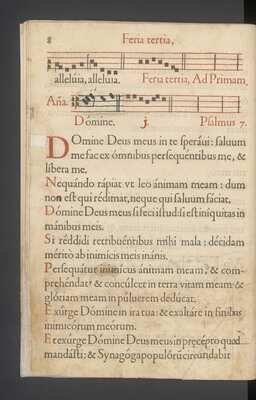 8 Feria tertia,
alleluia, alleluia. Feria tertia, Ad Primam
Aña.
Dómine. j. Psalmus 7.
DOmine Deus meus in te speráui: saluum
me fac ex ómnibus persequéntibus me, &
libera me.
Nequándo rápiat vt leo ánimam meam: dum
non est qui rédimat, neque qui saluum fáciat.
Dómine Deus meus si feci istud: si est iníquitas in
mánibus meis.
Si réddidi retribuéntibus mihi mala: décidam
mérito ab inimícis meis inánis.
Persequátur inimícus ánimam meam, & com-
prehéndat & concúlcet in terra vitam meam &
glóriam meam in púluerem dedúcat.
Exúrge Dómine in ira tua: & exaltáre in fínibus
inimicórum meórum.
Et exúrge Dómine Deus meus in præcépto quod
mandásti: & Synagóga populórū circúndabit